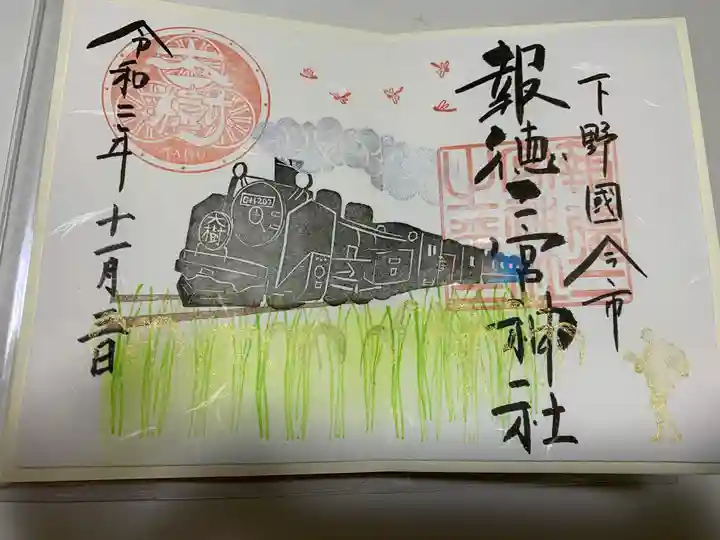 下野國今市
報徳二宮神社
令和二年十一月三日
大樹
TAIJU
C11 207
大樹